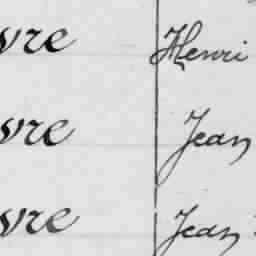 vre Henri
vre Jean
vre Jean